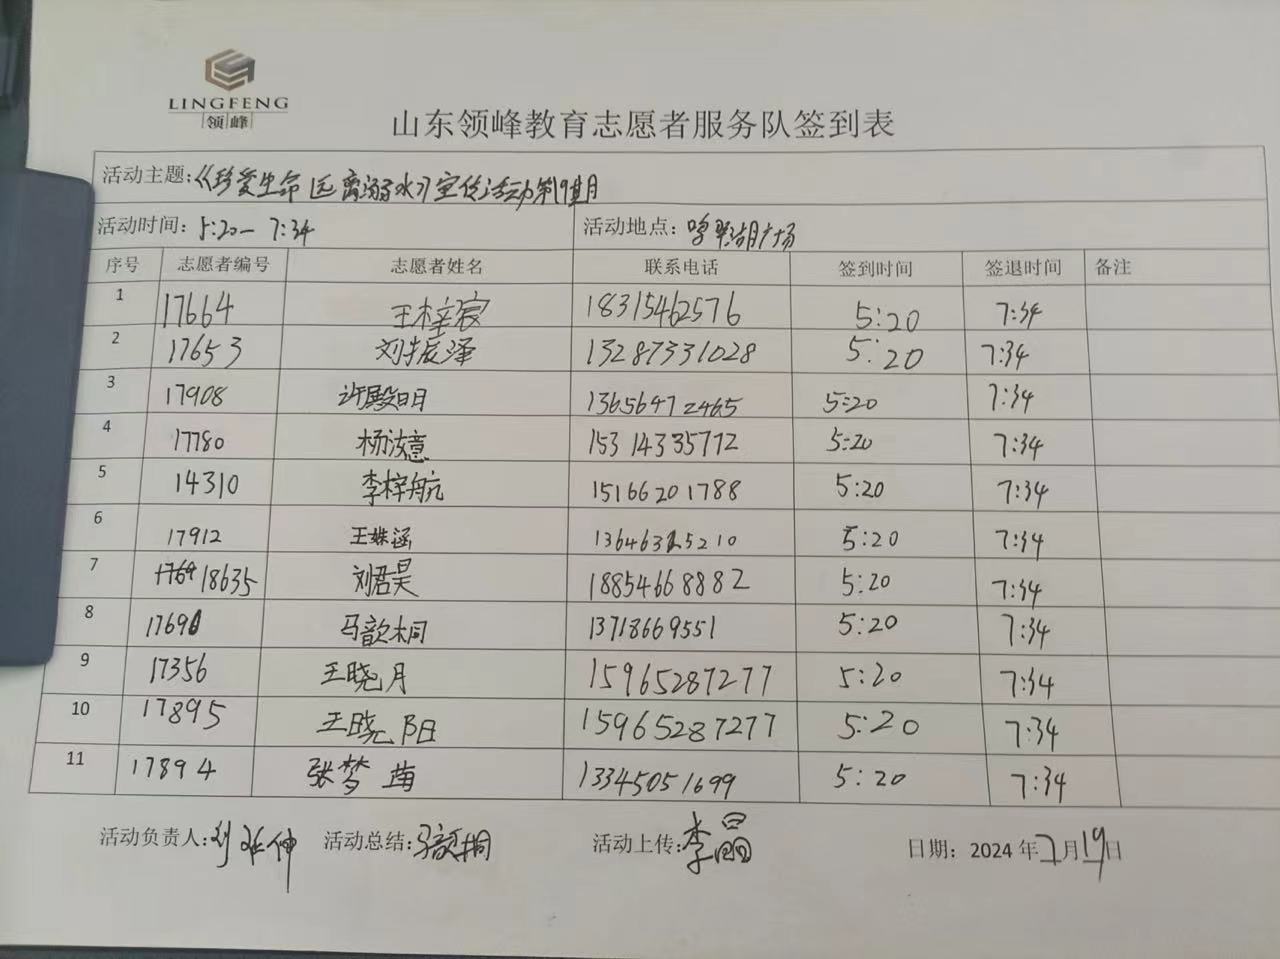 LINGFENG
领峰
山东领峰教育志愿者服务队签到表
活动主题:《珍爱生命 远离溺水》宣传活动第19期
活动时间: 5:20— 7:34 活动地点: 广场
序号 志愿者编号 志愿者姓名 联系电话 签到时间 签退时间 备注
1 17664 王梓宸 18315462576 5:20 7:34
2 17653 刘振泽 13287331028 5:20 7:34
3 17908 许殿明 13656472465 5:20 7:34
4 17780 杨汝意 15314335772 5:20 7:34
5 14310 李梓航 15166201788 5:20 7:34
6 17912 王姝涵 5:20 7:34
7 18635 刘君昊 18854668882 5:20 7:34
8 马歆桐 13718669551 5:20 7:34
9 17356 王晓月 15965287277 5:20 7:34
10 17895 王晓阳 15965287277 5:20 7:34
11 17894 张梦 13345051699 5:20 7:34
活动负责人: 活动总结:马歆桐 活动上传:李晶 日期: 2024年7月19日